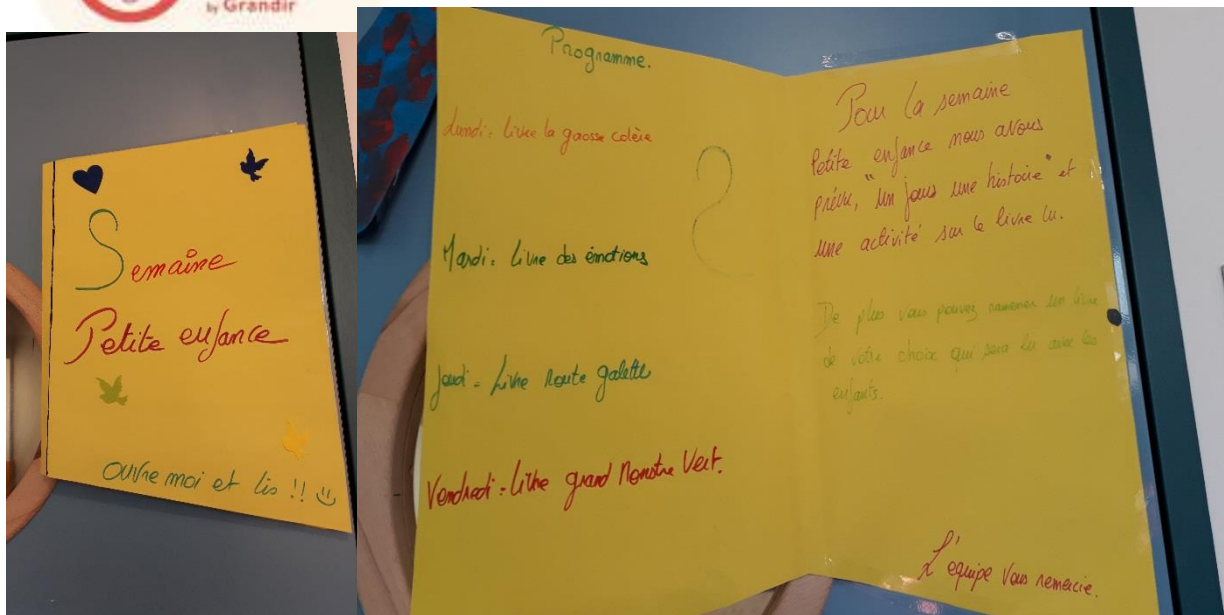 by Grandir
Semaine
Petite enfance
OUVre moi et lis !!
Programme.
Lundi : Livre la grosse colère
Mardi : Livre des émotions
Jeudi : Livre Roule galette
Vendredi : Livre grand Monstre Vert.
Pour la semaine
Petite enfance nous avons
prévu, "Un jour une histoire" et
une activité sur le livre lu.
De plus vous pouvez ramener un livre
de votre choix qui sera lu avec les
enfants.
L'équipe vous remercie.